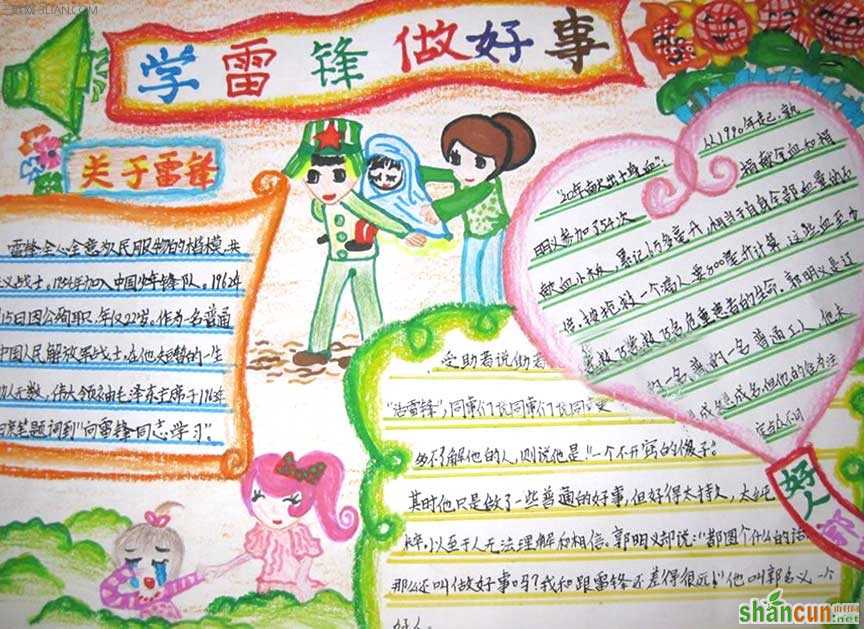 学雷锋做好事
关于雷锋
雷锋全心全意为人民服务的楷模,共
义战士。1954年加入中国少年锋队。1962年
15日因公殉职,年仅22岁。作为一名普通
中国人民解放军战士,在他短暂的一生
助人无数,伟大领袖毛泽东主席于1963年
题词到"向雷锋同志学习"。
从1990年起,郭
"20年献出十身血":
捐献全血加捐
明义参加了54次
献血小板,累记6万多毫升,相当于自身全部血量的10
倍,按抢救一个病人要800毫升计算,这些血至少
危重患者的生命。郭明义是辽
一名普通工人,他太
受助者说他者
"活雷锋",同事们
多不了解他的人,则说他是"一个不开窍的傻子。
其时他只是做了一些普通的好事,但好得太持久,太
以至于人无法理解和相信。郭明义却说:"都图个什么的话
那么还叫做好事吗?我和跟雷锋还差得很远!"他叫郭明义,一个
好人。
好人
三联网 3LIAN.COM
shancun
.net